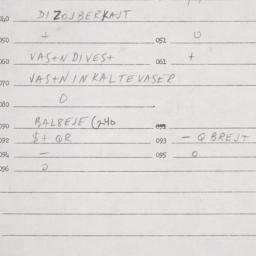 040 DI ZOJBERKAJT
050 + 051 0
060 VAS+N DI VES+ 061 +
070 VAS+N IN KALTE VASER
080 0
090 BALBEJE (240
092 $+ QR 093 - Q BREJT
094 - 095 0
096 2